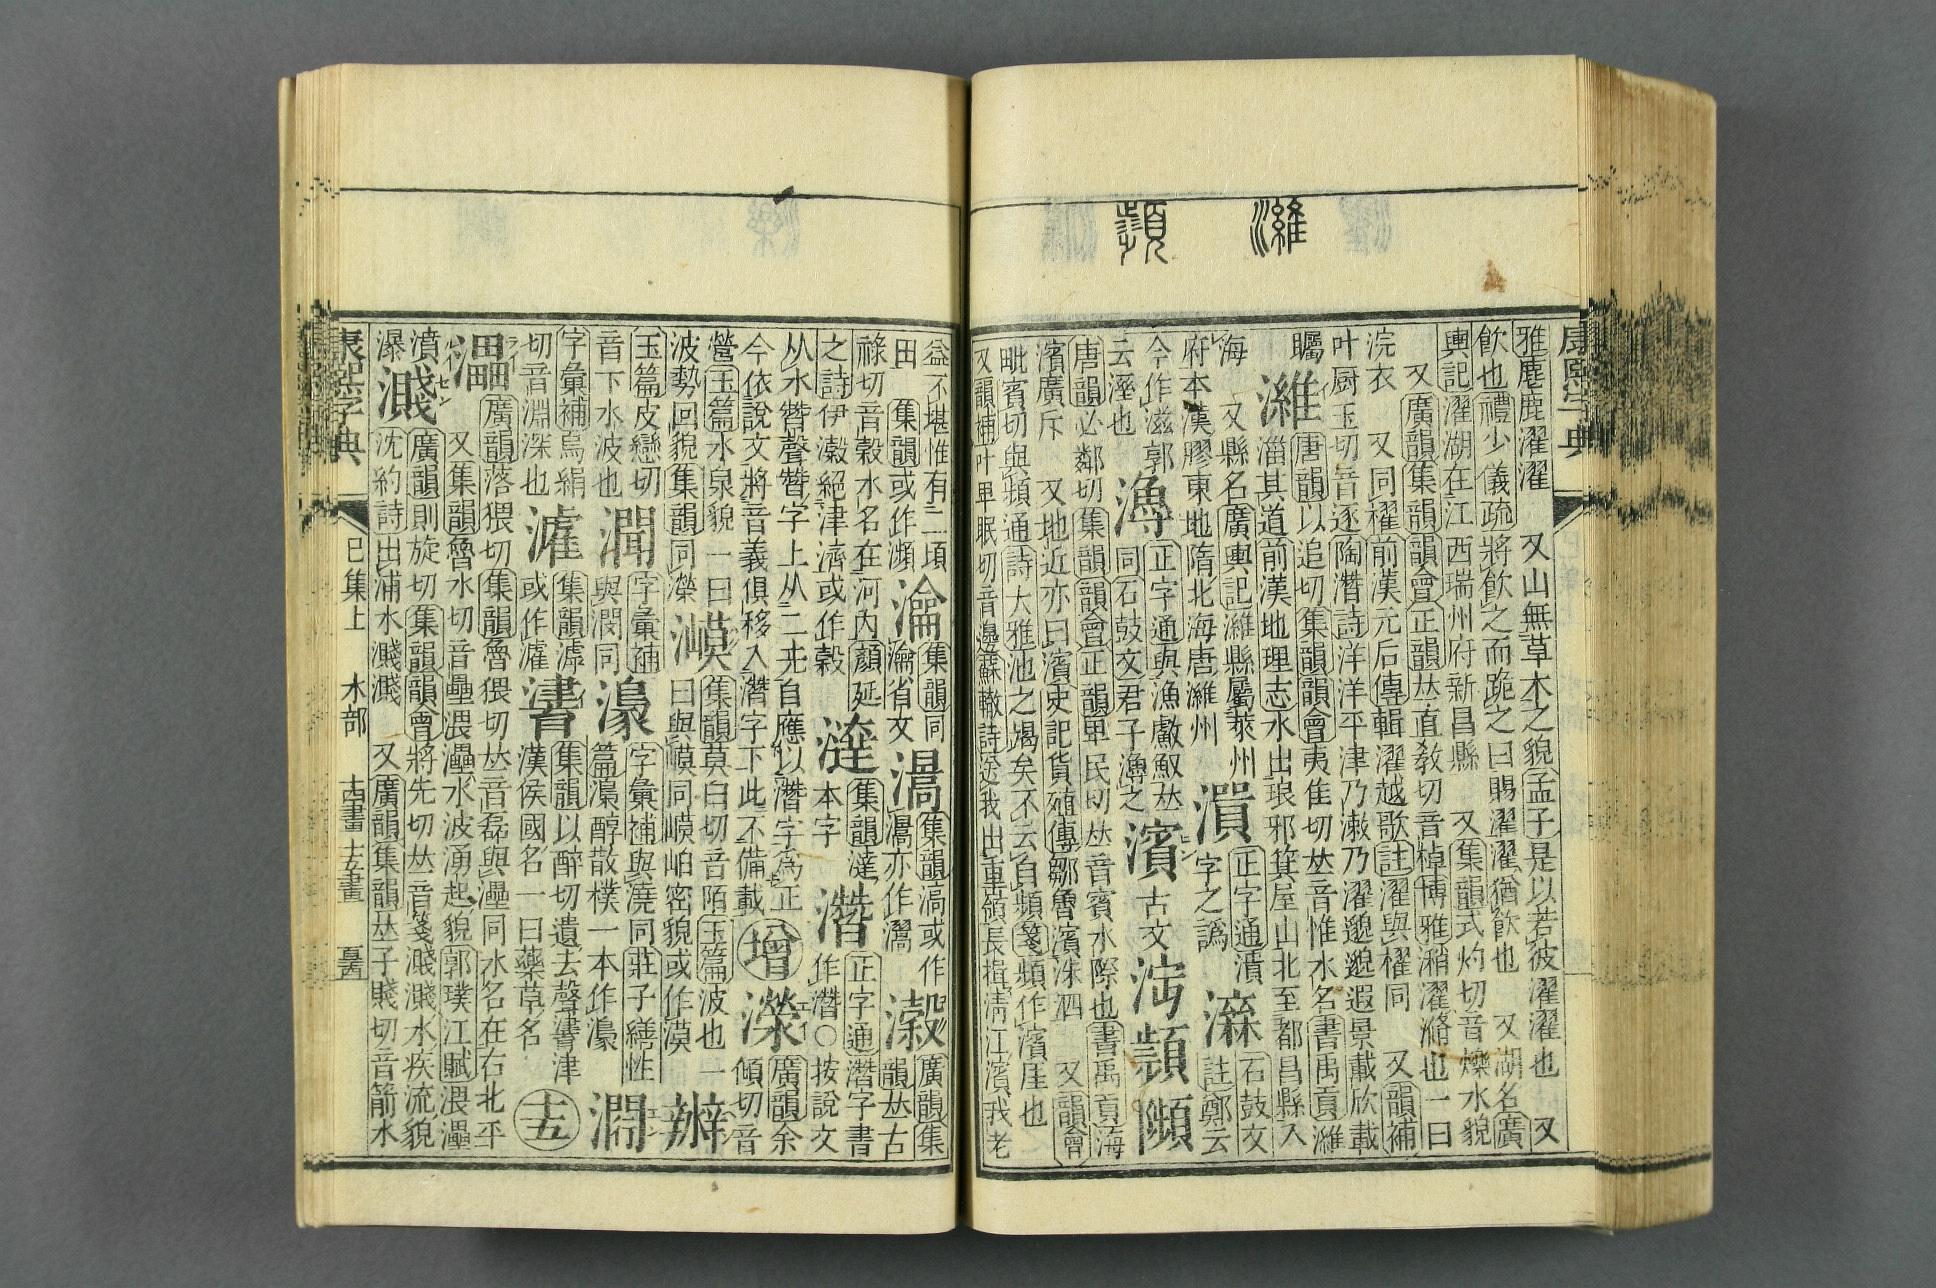 濰
康熙字典
雅麀鹿濯濯 又山無草木之貌孟子是以若彼濯濯也 又
飮也禮少儀疏將飮之而跪之曰賜濯濯猶飮也 又湖名廣
輿記濯湖在江西瑞州府新昌縣 又集韻式灼切音爍水貌
又廣韻集韻韻會正韻𠀤直敎切音棹博雅濯滫也一曰
浣衣 又同櫂前漢元后傳輯濯越歌註濯與櫂同 又韻補
叶厨玉切音逐陶潛詩洋洋平津乃漱乃濯邈邈遐景載欣載
矚
濰
唐韻以追切集韻韻會夷隹切𠀤音惟水名書禹貢濰
淄其道前漢地理志水出琅邪箕屋山北至都昌縣入
海 又縣名廣輿記濰縣屬萊州
府本漢膠東地隋北海唐濰州
濆
正字通濆
字之譌
石鼓文
註鄭云
今作滋郭
云溼也
正字通與漁䱷䰻𠀤
同石鼓文君子漁之
濱
古文
唐韻必鄰切集韻韻會正韻𤰞民切𠀤音賓水際也書禹貢海
濱廣斥 又地近亦曰濱史記貨殖傳鄒魯濱洙泗 又韻會
毗賓切與頻通詩大雅池之竭矣不云自頻箋頻作濱厓也
又韻補叶𤰞眠切音邊蘇轍詩送我出重嶺長揖淸江濱我老
益不堪惟有二頃
田
集韻或作瀕
瀹
集韻同
瀹省文
集韻滈或作
澯
廣韻集
韻𠀤古
祿切音穀水名在河內顏延
之詩伊瀔絕津濟或作穀
集韻澾
本字
濳
正字通濳字書
作潛○按說文
从水朁聲朁字上从二旡自應以濳字爲正
今依說文將音義俱移入潛字下此不備載
增
濴
廣韻余
傾切音
營玉篇水泉貌一曰
波勢回貌集韻同濚
集韻莫白切音陌玉篇波也一
曰與㵹同㵹岶密貌或作漠
玉篇皮變切
音下水波也
字彙補
與潤同
字彙補與澆同莊子繕性
篇濠醇散樸一本作濠
字彙補烏絹
切音淵深也
集韻滹
或作滹
集韻以醉切遺去聲書津
漢侯國名一曰藥草名
十五
㵽
廣韻落猥切集韻魯猥切𠀤音磊與灅同水名在右北平
又集韻魯水切音壘渨㵽水波湧起貌郭璞江賦渨㵽
濆
瀑
濺
廣韻則旋切集韻韻會將先切𠀤音箋濺濺水疾流貌
沈約詩出浦水濺濺 又廣韻集韻𠀤子賤切音箭水
康熙字典
巳集上 水部